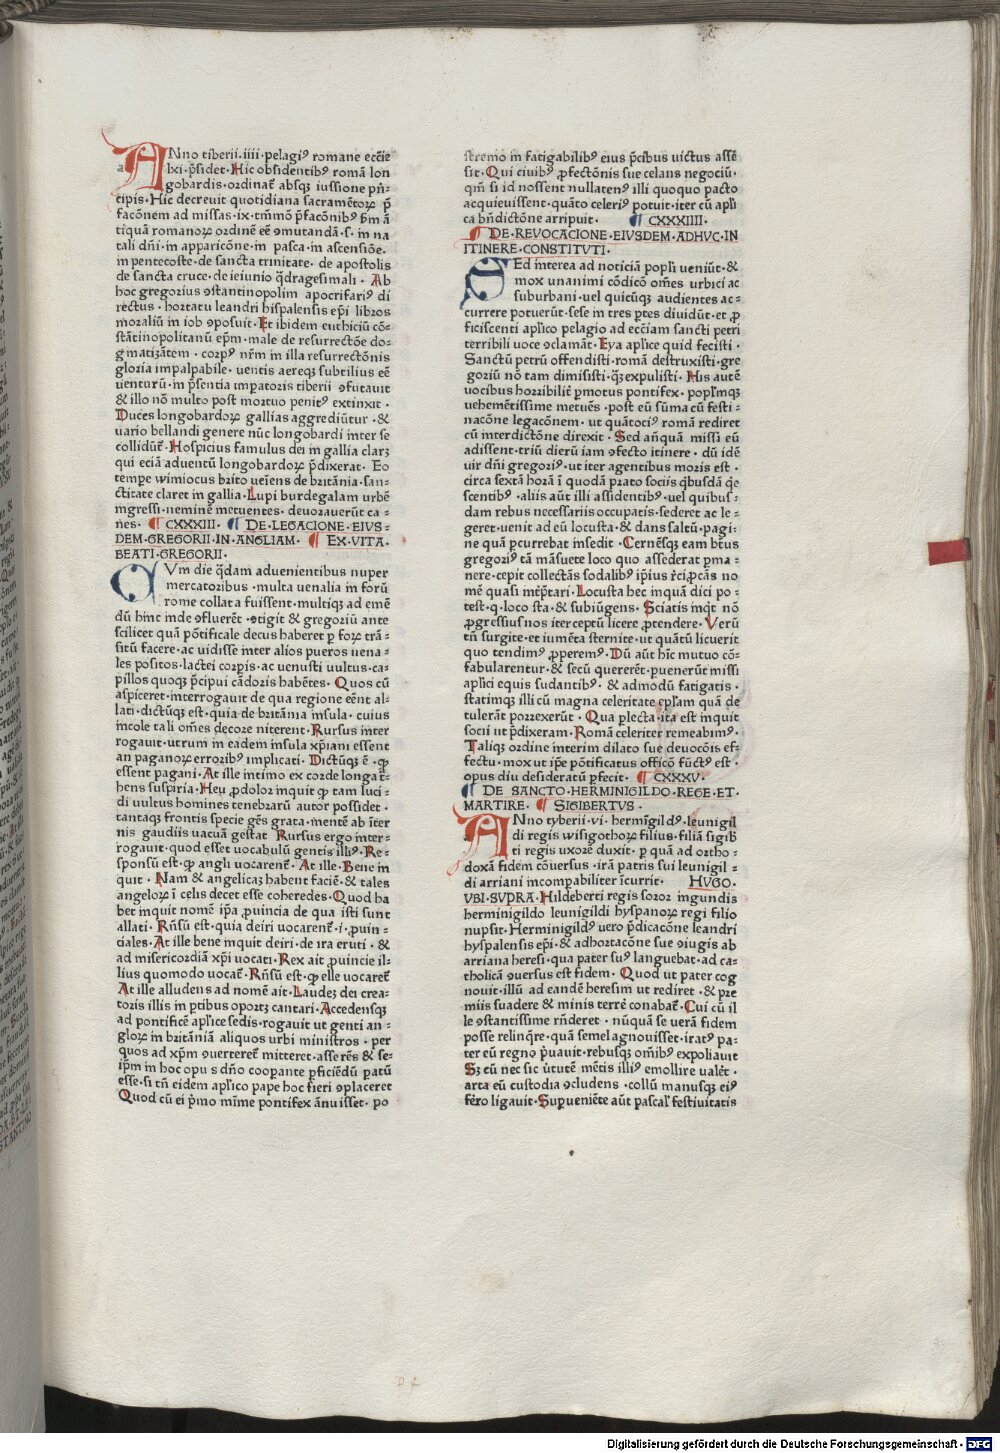 ANno tiberii.iiii.pelagiꝰ romane ecc̄ie
lxi.p̄sidet.Hic obsidentibꝰ romā lon
gobardis.ordinat̄ absqꝫ iussione pn̄
cipis.Hic decreuit quotidiana sacramētoꝝ p̄
facōnem ad missas.ix.tm̄mō p̄facōnibꝰ ꝑm ā
tiquā romanoꝝ ordinē eē ꝯmutandā.s.in na
tali dn̄i.in apparicōne.in pasca.in ascensiōe.
in pentecoste.de sancta trinitate.de apostolis
de sancta cruce.de ieiunio q̄dragesimali. Ab
hoc gregorius ꝯstantinopolim apocrifariꝰ di
rectus.hortatu leandri hispalensis ep̄i libros
moraliū in iob ꝯposuit.Et ibidem euthiciū cō⸗
stātinopolitanū ep̄m.male de resurrectōe do⸗
gmatizātem.corpꝰ nr̄m in illa resurrectōnis
gloria impalpabile.uentis aereqꝫ subtilius eē
uenturū.in p̄sentia imꝑatoris tiberii ꝯfutauit
& illo nō multo post mortuo penitꝰ extinxit.
Duces longobardoꝝ gallias aggrediūtur.&
uario bellandi genere nūc longobardi inter se
collidūt̄.Hospicius famulus dei in gallia clarꝫ
qui eciā aduentū longobardoꝝ p̄dixerat. Eo
tempe wimiocus brito ueiens de britānia.san⸗
ctitate claret in gallia.Lupi burdegalam urbē
ingressi.neminē metuentes.deuorauerūt ca⸗
nes. ¶ CXXXIII. ¶ DE.LEGACIONE.EIVS⸗
DEM.GREGORII.IN.ANGLIAM. ¶ EX.VITA.
BEATI.GREGORII.
CVm die q̄dam aduenientibus nuper
mercatoribus.multa uenalia in forū
rome collata fuissent.multiqꝫ ad emē
dū hinc inde ꝯfluerēt.ꝯtigit & gregoriū ante
scilicet quā pōtificale decus haberet ꝑ foꝝ trā⸗
sitū facere.ac uidisse inter alios pueros uena⸗
les positos.lactei corpis.ac uenusti uultus.ca⸗
pillos quoqꝫ p̄cipui cādoris habētes. Quos cū
aspiceret.interrogauit de qua regione eēnt al⸗
lati.dictūqꝫ est.quia de britānia insula.cuius
incole tali om̄es decore niterent.Rursus inter
rogauit.utrum in eadem insula xp̄iani essent
an paganoꝝ erroribꝰ implicati.Dictūqꝫ ē.ꝙ
essent pagani.At ille intimo ex corde longa t̄⸗
hens suspiria.Heu ꝓdolor inquit ꝙ tam luci⸗
di uultus homines tenebrarū autor possidet.
tantaqꝫ frontis species gēs grata.mentē ab īter
nis gaudiis uacuā gestat Rursus ergo inter⸗
rogauit.quod esset uocabulū gentis illiꝰ.Re⸗
sponsū est.ꝙ angli uocarent̄.At ille.Bene in
quit.Nam & angelicaꝫ habent faciē.& tales
angeloꝝ ī celis decet esse coheredes.Quod ha
bet inquit nomē ip̄a ꝓuincia de qua isti sunt
allati.Rn̄sū est.quia deiri uocarent̄.i.ꝓuin⸗
ciales.At ille bene inquit deiri.de ira eruti.&
ad misericordiā xp̄i uocati.Rex ait ꝓuincie il⸗
lius quomodo uocat̄.Rn̄sū est.ꝙ elle uocaret̄
At ille alludens ad nomē ait.Laudeꝫ dei crea⸗
toris illis in ꝑtibus oportꝫ cantari.Accedensqꝫ
ad pontificē aplīce sedis.rogauit ut genti an⸗
gloꝝ in britāniā aliquos urbi ministros.per
quos ad xp̄m ꝯuerteret̄ mitteret.asserēs & se⸗
ip̄m in hoc opus dn̄o cooꝑante ꝑficiēdū patū
esse.si tn̄ eidem aplīco pape hoc fieri ꝯplaceret
Quod cū ei p̄mo mīme pontifex ānuisset.po
stremo in fatigabilibꝰ eius p̄cibus uictus assē
sit.Qui ciuibꝰ ꝓfectōnis sue celans negociū.
qm̄ si id nossent nullatenꝰ illi quoquo pacto
acquieuissent.quāto celeriꝰ potuit.iter cū aplī
ca bn̄dictōne arripuit. ¶ CXXXIIII.
¶ DE.REVOCACIONE.EIVSDEM.ADHVC.IN
ITINERE.CONSTITVTI.
SEd interea ad noticiā popl̄i ueniūt.&
mox unanimi cōdicō om̄es urbici ac
suburbani.uel quicūqꝫ audientes ac⸗
currere potuerūt.sese in tres ꝑtes diuidūt.et ꝓ
ficiscenti aplīco pelagio ad ecc̄iam sancti petri
terribili uoce ꝯclamāt.Eya aplīce quid fecisti.
Sanctū petrū offendisti.romā destruxisti.gre
goriū nō tam dimisisti.q̄ꝫ expulisti.His autē
uocibus horribilit̄ ꝑmotus pontifex.popl̄mqꝫ
uehemētissime metuēs.post eū sūma cū festi⸗
nacōne legaconem.ut quātociꝰ romā rediret
cū interdictōne direxit.Sed an̄quā missi eū
adissent.triū dierū iam ꝯfecto itinere.dū idē
uir dn̄i gregoriꝰ.ut iter agentibus moris est.
circa sextā horā ī quodā prato sociis q̄busdā q̄e
scentibꝰ.aliis aūt illi assidentibꝰ.uel quibus⸗
dam rebus necessariis occupatis.sederet ac le⸗
geret.uenit ad eū locusta.& dans saltū.pagi⸗
ne quā ꝑcurrebat insedit.Cernēsqꝫ eam bt̄us
gregoriꝰ tā māsuete loco quo assederat ꝑma⸗
nere.cepit collectās sodalibꝰ ip̄ius r̄ciꝓcās no
mē quasi int̄ꝑtari.Locusta hec inquā dici po⸗
test.q.loco sta.& subiūgens.Sciatis inqt̄ nō
ꝓgressiuſ nos iterceptū licere ꝓtendere.Verū
tn̄ surgite.et iumēta sternite.ut quātū licuerit
quo tendimꝰ ꝓperemꝰ.Dū aūt hīc mutuo cō⸗
fabularentur.& secū quererēt.puenerūt missi
aplīci equis sudantibꝰ.& admodū fatigatis.
statimqꝫ illi cū magna celeritate epl̄am quā de
tulerāt porrexerūt.Qua ꝑlecta.ita est inquit
socii ut p̄dixeram.Romā celeriter remeabimꝰ.
Taliqꝫ ordine interim dilato sue deuocōis ef⸗
fectu.mox ut ip̄e pōtificatus officō fūctꝰ est.
opus diu desideratū ꝑfecit. ¶ CXXXV.
¶ DE SANCTO.HERMINIGILDO.REGE.ET.
MARTIRE. ¶ SIGIBERTVS.
ANno tyberii.vi.hermīgildꝰ.leunigil
di regis wisigothoꝝ filius.filiā sigib̄
ti regis uxorē duxit.ꝑ quā ad ortho⸗
doxā fidem cōuersus.irā patris sui leunigil⸗
di arriani incomꝑabiliter īcurrit. HVGO.
VBI.SVPRA.Hildeberti regis soror ingundis
herminigildo leunigildi hyspanoꝝ regi filio
nupsit.Herminigildꝰ uero p̄dicacōne leandri
hyspalensis ep̄i.& adhortacōne sue ꝯiugis ab
arriana heresi.qua pater suꝰ languebat.ad ca⸗
tholicā ꝯuersus est fidem. Quod ut pater cog
nouit.illū ad eandē heresim ut rediret.& pre
miis suadere & minis terrē conabat̄.Cui cū il
le ꝯstantissime rn̄deret.nūquā se uerā fidem
posse relinq̄re.quā semel agnouisset.iratꝰ pa⸗
ter eū regno p̄uauit.rebusqꝫ om̄ibꝰ expoliauit
Sꝫ cū nec sic ūtutē mētis illiꝰ emollire ualēt.
arta eū custodia ꝯcludens.collū manusqꝫ eiꝰ
fēro ligauit.Suꝑueniēte aūt pascal̄ festiuitatis
Digitalisierung gefördert durch die Deutsche Forschungsgemeinschaft · DFG